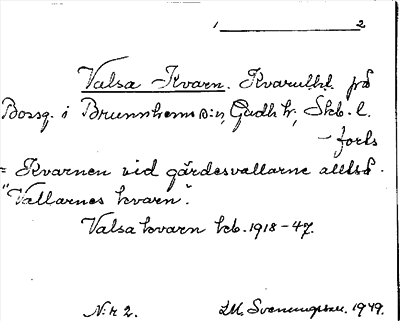 1 2
Valsa Kvarn. Kvarutkl. på
Bossg. i Brunnhems s:n, Gudh. hr, Skb. l.
- forts
= Kvarnen vid gärdesvallarne alltså.
"Vallarnes kvarn".
Valsa kvarn kb. 1918-47.
N:r 2. LM. Svenungsson. 1949.